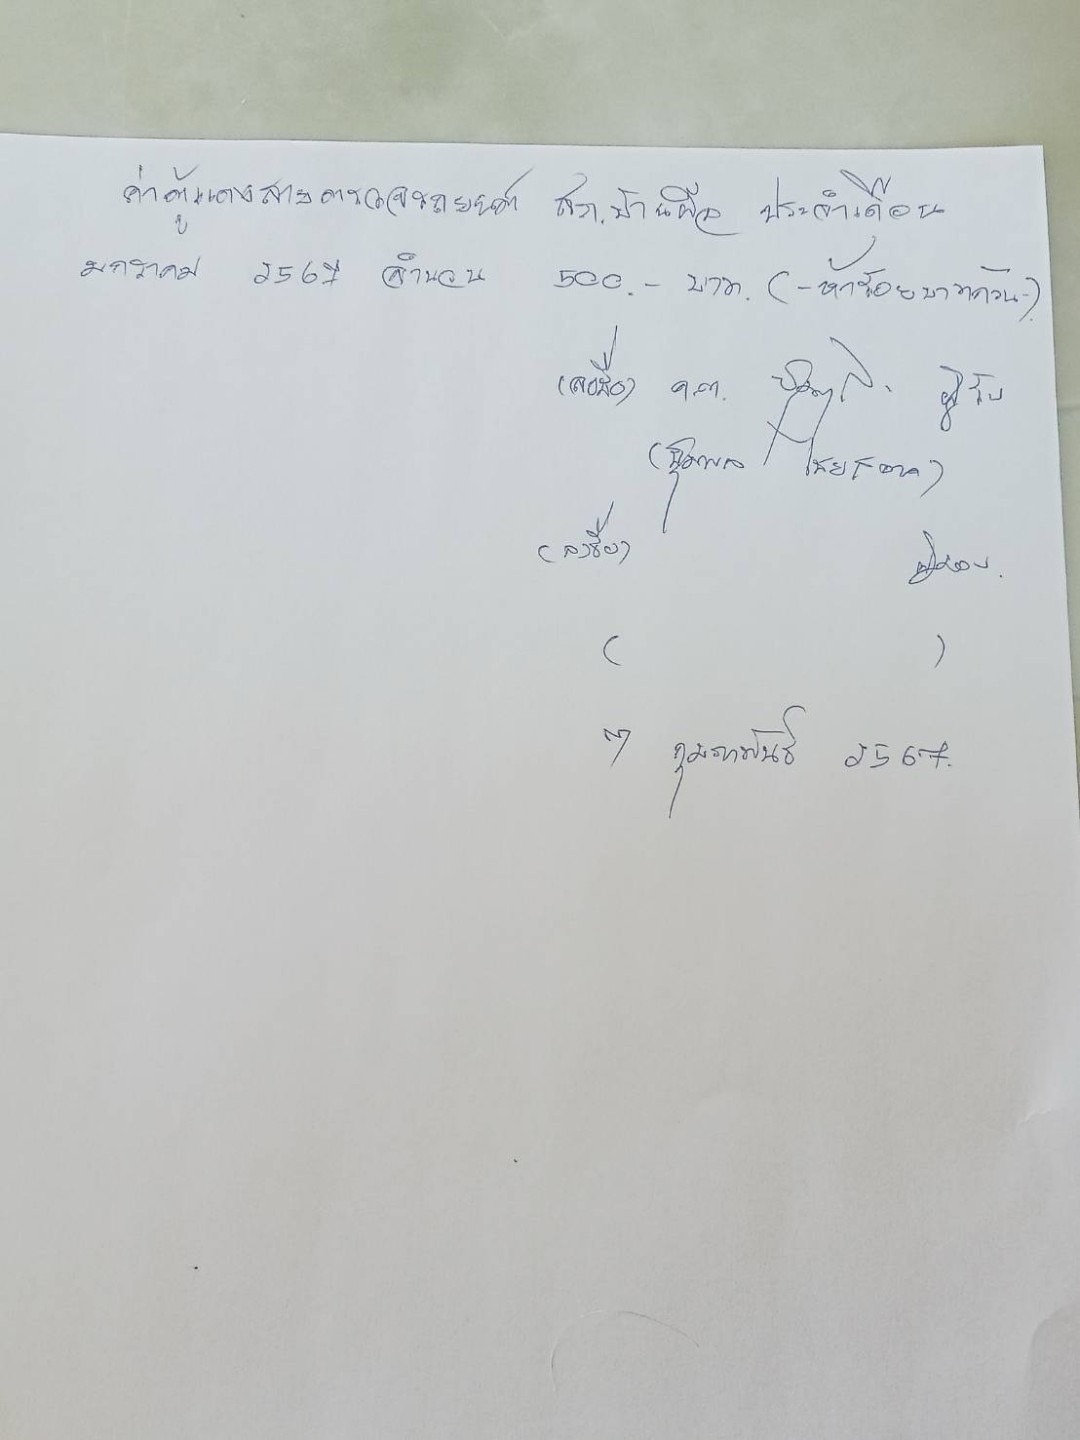 ค่าตู้แดงสายตรวจรถยนต์ สภ.บ้านผือ ประจำเดือน
มกราคม 2567 จำนวน 500.- บาท. (-ห้าร้อยบาทถ้วน-)
(ลงชื่อ) ด.ต. ผู้รับ
(ลงชื่อ) ผู้มอบ.
( )
7 กุมภาพันธ์ 2567.